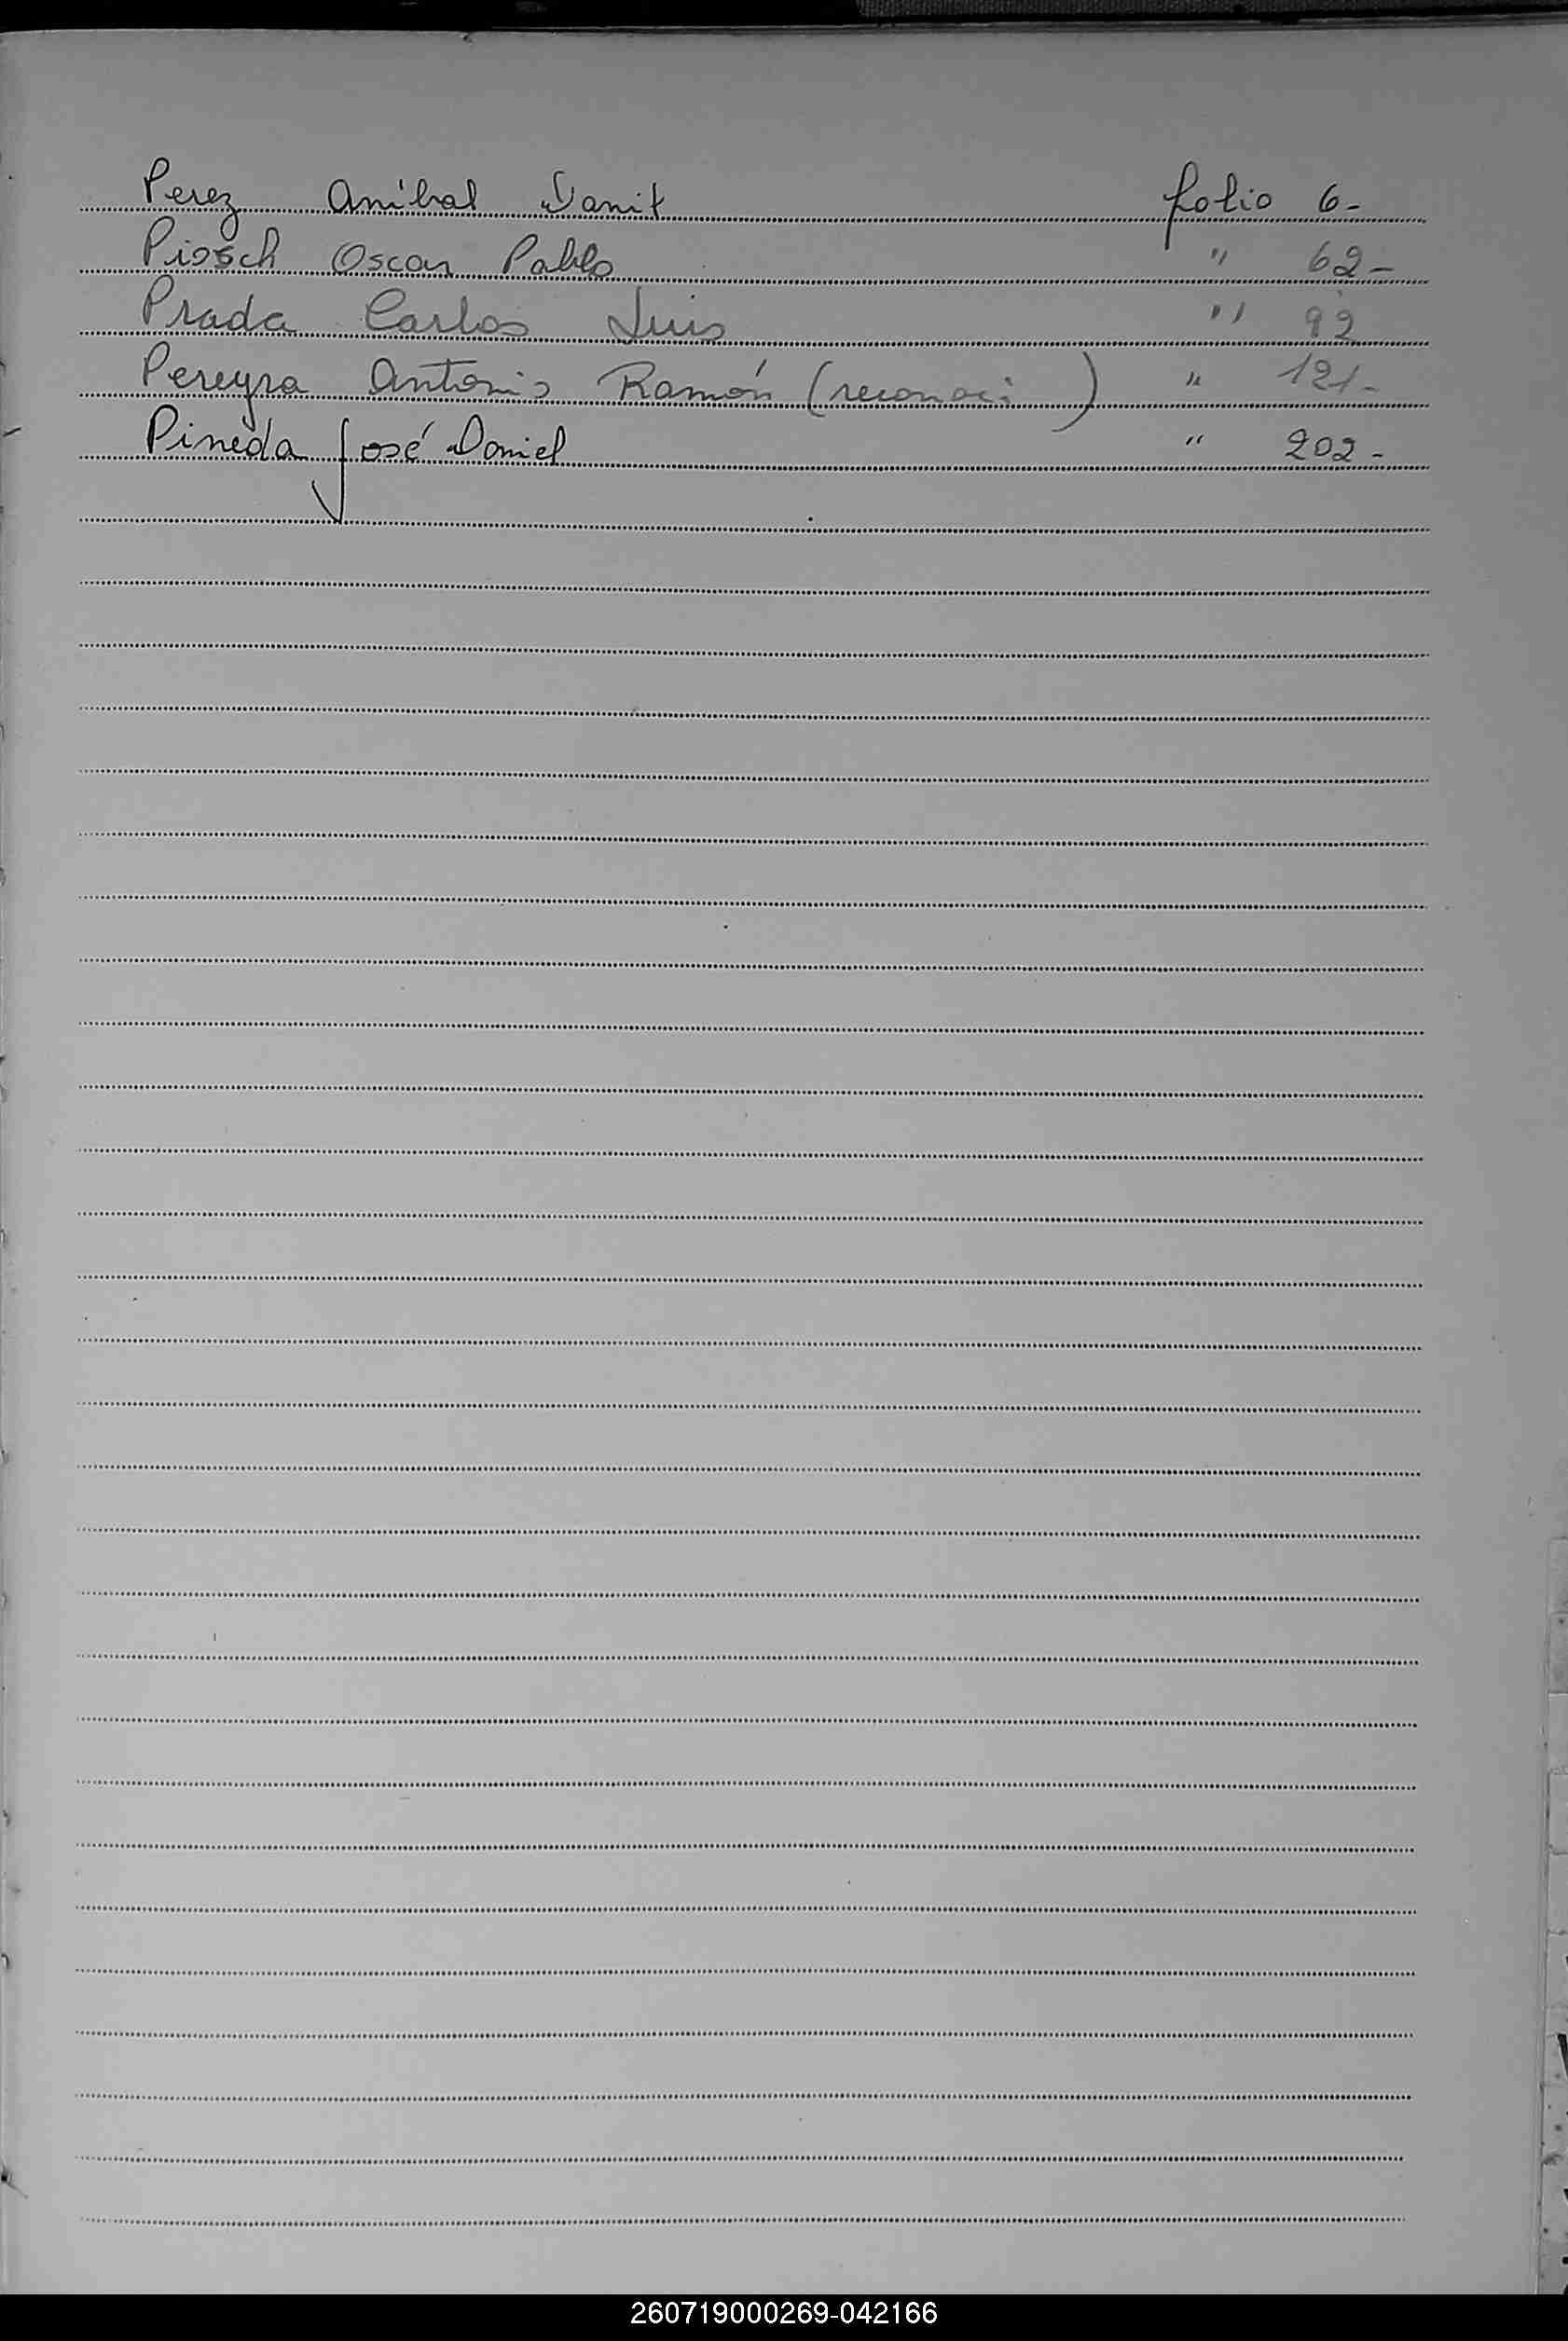 Perez Aníbal Danil folio 6-
Piosch Oscar Pablo " 62-
Prada Carlos Luis " 92
Pereyra Antonio Ramón (reconoci ) " 121-
Pineda José Daniel " 202-
260719000269-042166